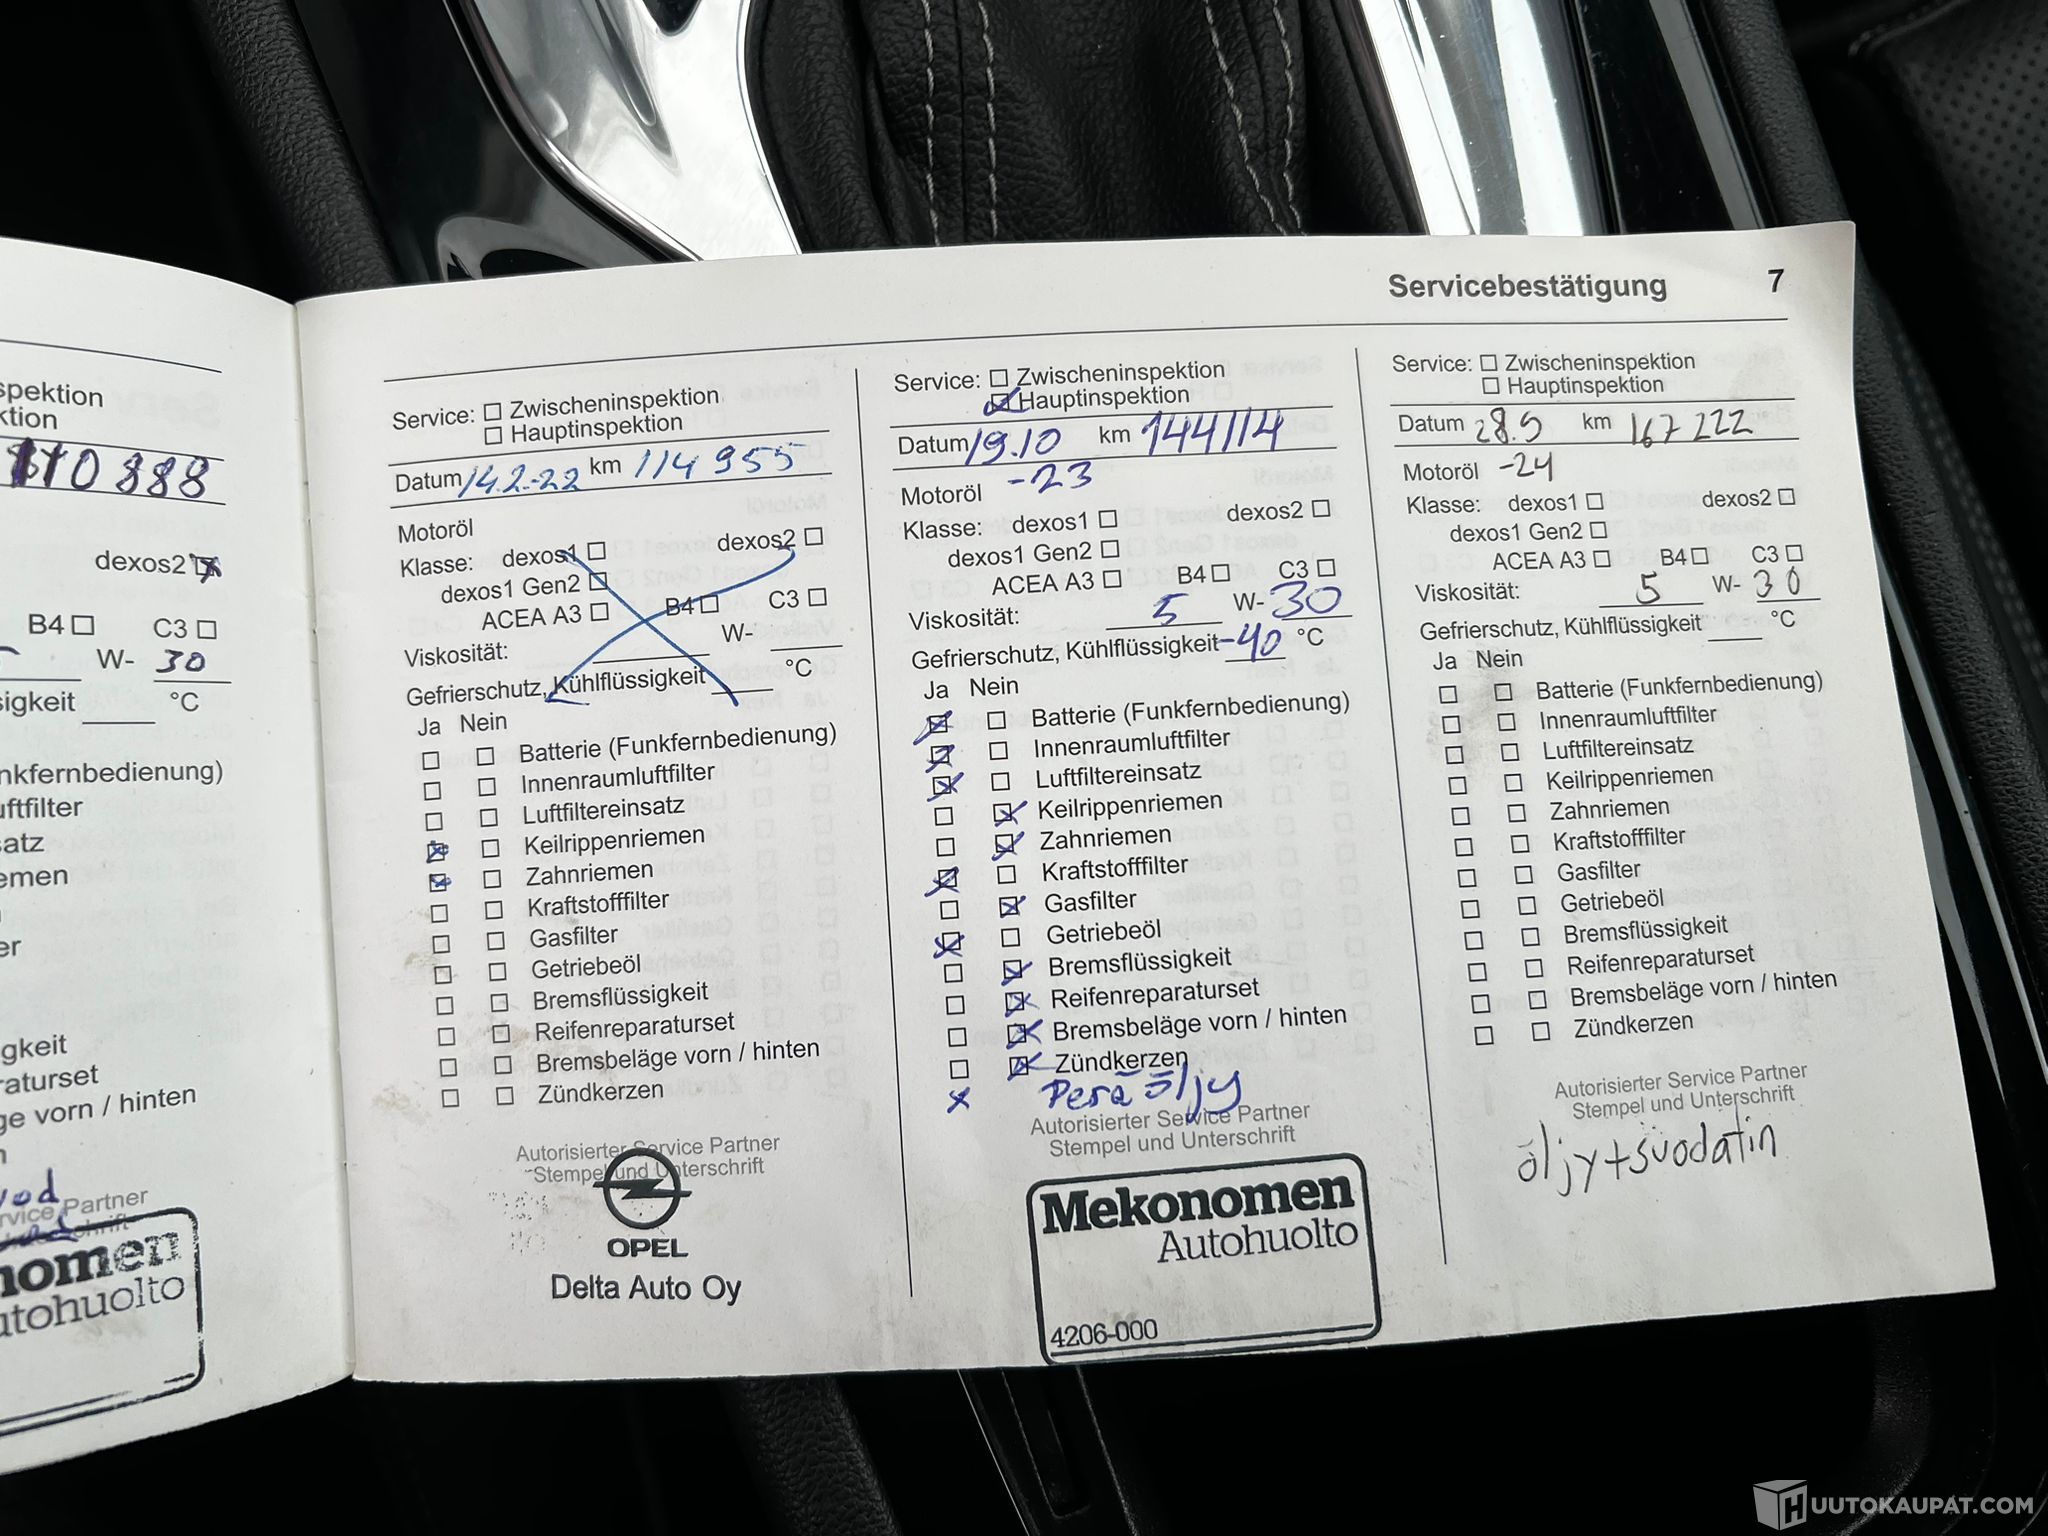 spektion
ktion
110888
dexos2
B4 C3
W- 30
sigkeit °C
nkfernbedienung)
uftfilter
satz
emen
er
gkeit
raturset
ge vorn / hinten
rvice Partner
nomen
utohuolto
Servicebestätigung 7
Service: Zwischeninspektion
Hauptinspektion
Datum 14.2.-22 km 114 955
Motoröl
Klasse: dexos1 dexos2
dexos1 Gen2
ACEA A3 B4 C3
Viskosität: W-
Gefrierschutz, Kühlflüssigkeit °C
Ja Nein
Batterie (Funkfernbedienung)
Innenraumluftfilter
Luftfiltereinsatz
Keilrippenriemen
Zahnriemen
Kraftstofffilter
Gasfilter
Getriebeöl
Bremsflüssigkeit
Reifenreparaturset
Bremsbeläge vorn / hinten
Zündkerzen
Autorisierter Service Partner
Stempel und Unterschrift
OPEL
Delta Auto Oy
Service: Zwischeninspektion
Hauptinspektion
Datum 19.10 km 144114
Motoröl -23
Klasse: dexos1 dexos2
dexos1 Gen2
ACEA A3 B4 C3
Viskosität: 5 W- 30
Gefrierschutz, Kühlflüssigkeit -40 °C
Ja Nein
Batterie (Funkfernbedienung)
Innenraumluftfilter
Luftfiltereinsatz
Keilrippenriemen
Zahnriemen
Kraftstofffilter
Gasfilter
Getriebeöl
Bremsflüssigkeit
Reifenreparaturset
Bremsbeläge vorn / hinten
Zündkerzen
x Perä öljy
Autorisierter Service Partner
Stempel und Unterschrift
Mekonomen
Autohuolto
4206-000
Service: Zwischeninspektion
Hauptinspektion
Datum 28.9 km 167 222
Motoröl -24
Klasse: dexos1 dexos2
dexos1 Gen2
ACEA A3 B4 C3
Viskosität: 5 W- 30
Gefrierschutz, Kühlflüssigkeit °C
Ja Nein
Batterie (Funkfernbedienung)
Innenraumluftfilter
Luftfiltereinsatz
Keilrippenriemen
Zahnriemen
Kraftstofffilter
Gasfilter
Getriebeöl
Bremsflüssigkeit
Reifenreparaturset
Bremsbeläge vorn / hinten
Zündkerzen
Autorisierter Service Partner
Stempel und Unterschrift
öljy+suodatin
HUUTOKAUPAT.COM